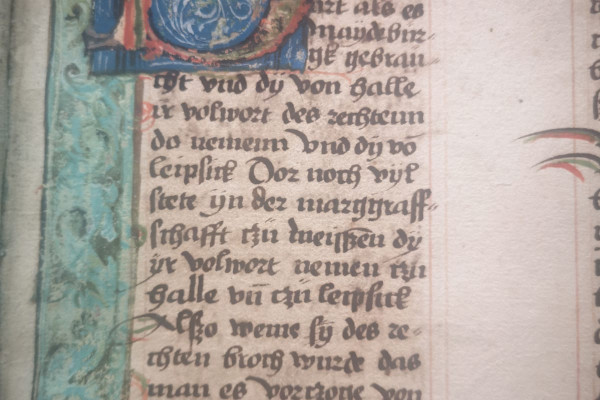 als es
maydebur-
gk gebrau
cht vnd dÿ von halle
ir volwort des rechtenn
do nemenn Vnd dÿ vō
leipsick Dor noch vyl
stete ÿn der marggraff-
schafft czü Meissen dÿ
ÿr volwort nemen czu
halle vn̄ czü leipsick
Alszo wenne sÿ des re-
chten broch wurde das
man es von